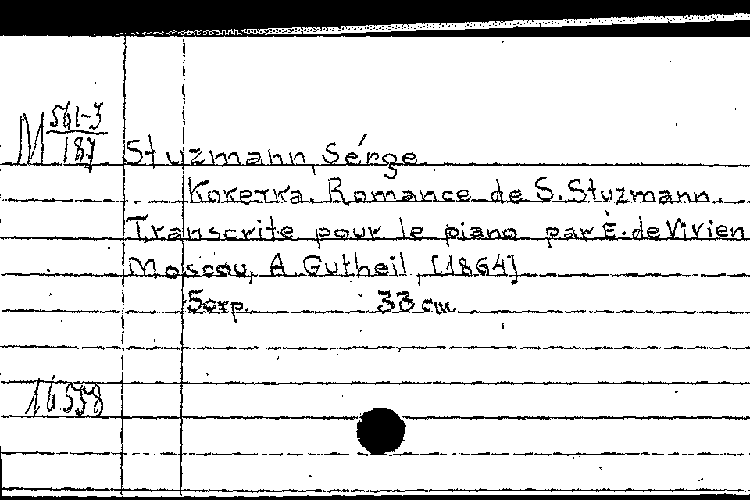 M 561-3/187
Stuzmann, Sérge
Кокетка. Romance de S. Stuzmann.
Transcrite pour le piano par E. de Vivien
Moscou, A. Gutheil, [1864]
5 стр. 33 см.
16558